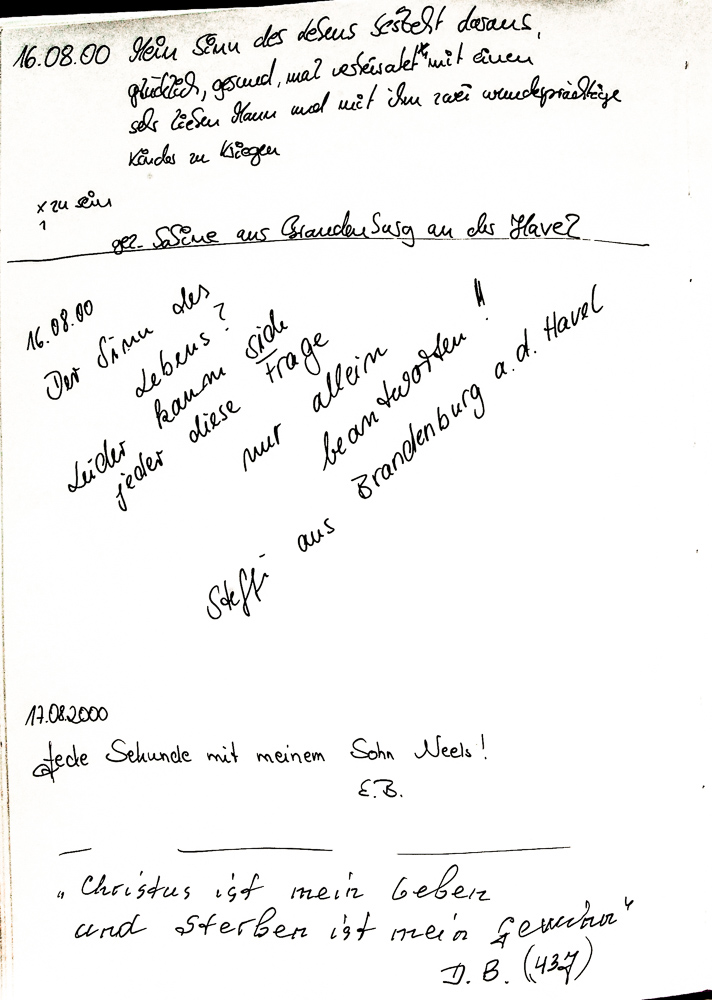 16.08.00 Mein Sinn des Lebens besteht daraus,
glücklich, gesund, mal verheiratet x mit einen
sehr lieben Mann und mit ihm zwei wunderprächtige
Kinder zu kriegen
x zu sein
1
gez. Sabine aus Brandenburg an der Havel
16.08.00
Der Sinn des
Lebens?
Leider kann sich
jeder diese Frage
nur allein
beantworten!
Steffi aus Brandenburg a.d. Havel
17.08.2000
Jede Sekunde mit meinem Sohn Neels!
E.B.
„Christus ist mein Leben
und Sterben ist mein Gewinn"
D.B. (43J)